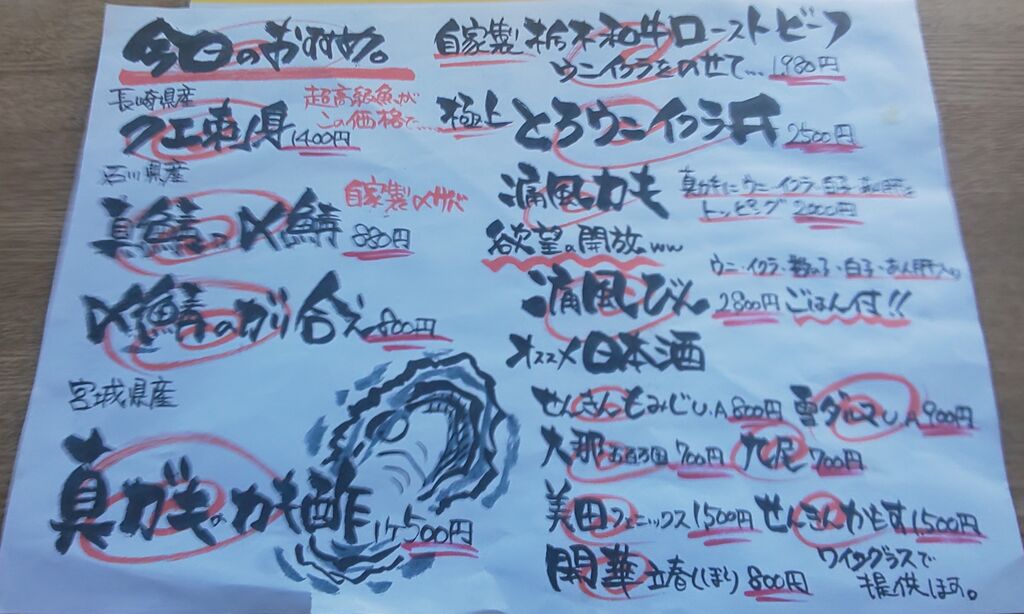 今日のおすすめ。
長崎県産
超高級魚が
この価格で…
クエ刺身 1400円
石川県産
自家製〆サバ
真鯖の〆鯖 880円
〆鯖のがり合え 800円
宮城県産
真ガキのカキ酢 1ヶ500円
自家製 栃木和牛ローストビーフ
ウニイクラをのせて… 1980円
極上 とろウニイクラ丼 2500円
痛風カキ
真ガキにウニ・イクラ・白子・あん肝を
トッピング 2000円
欲望の開放ww
ウニ・イクラ・数の子・白子・あん肝入り
痛風びん 2800円 ごはん付!!
オススメ日本酒
せんきんもみじU.A 800円 雪ダルマU.A 900円
大那 五百万国 700円 九尾 700円
美田フェニックス 1500円 せんきんかもす 1500円
開華 立春しぼり 800円
ワイングラスで
提供します。